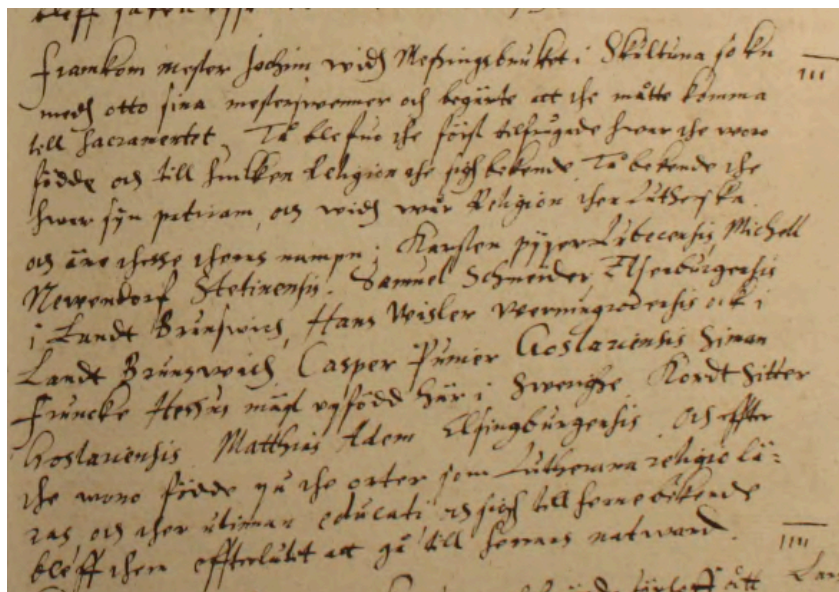 bleff
Framkom mester Jochim widh Messingsbruket i Skultuna sokn
medh otto sina mesterswenner och begärte att the måtte komma
till sacramentet. Tå blefuo the först tilfrågade hwar the woro
födde och till huilken Religion the sigh bekende. Tå bekende the
hwar syn patriam, och widh wår Religion then Lutherska
och äre thesse theras nampn: Karsten pijper Lubecensis, Michell
Newendorf Stetinensis. Samuel Schneider Elsenburgensis
i Landt Brunswich, Hans Wisler Werningrodensis ock i
Landt Brunswich Casper Pumer Goslariensis Siman
Francke Hessus mägt upfödd här i Swerighe Kordt Sitter
Goslariensis Matthias Adem Elsingburgensis och effter
the woro födde på the orter som Lutherana religio lä-
ras och ther utinnan educati och sigh till henne bekende
bleff them effterlåtet att gå till herrans natward.
III
IIII